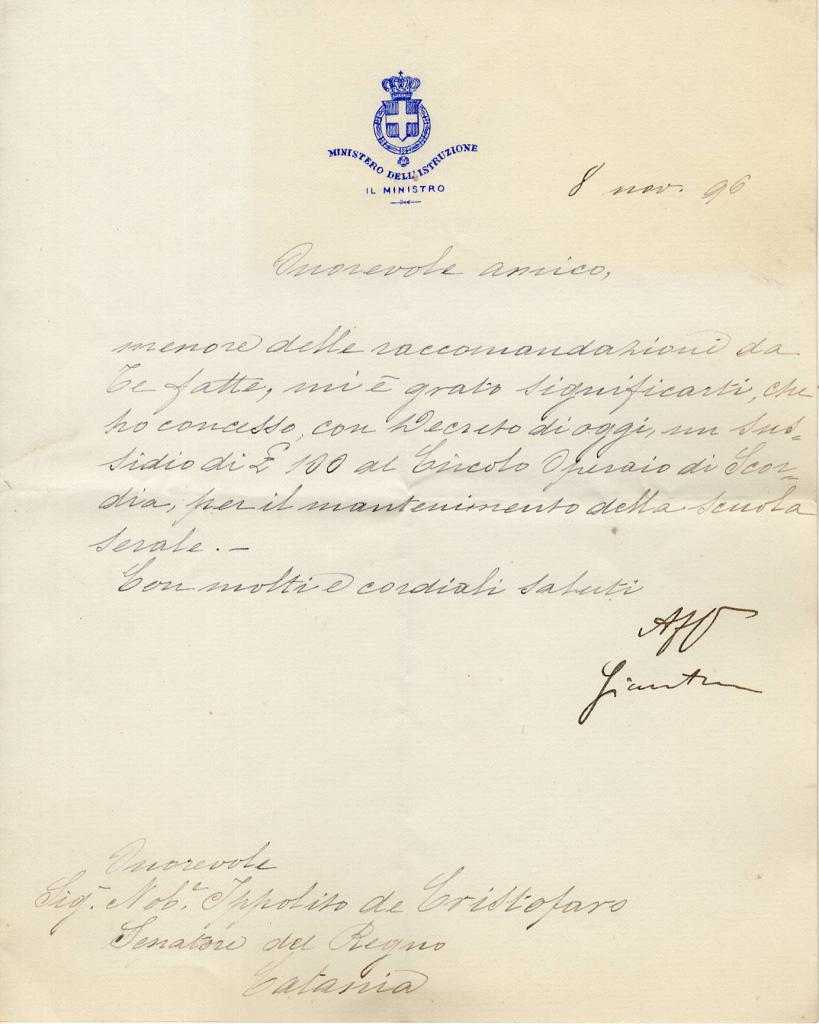 MINISTERO DELL'ISTRUZIONE
IL MINISTRO
8 nov. 96
Onorevole amico,
memore delle raccomandazioni da
Te fatte, mi è grato significarti, che
ho concesso, con Decreto di oggi, un sus=
sidio di £ 100 al Circolo Operaio di Scor=
dia, per il mantenimento della scuola
serale. –
Con molti e cordiali saluti
Aff
Onorevole
Sig. Nob. Ippolito de Cristofaro
Senatore del Regno
Catania